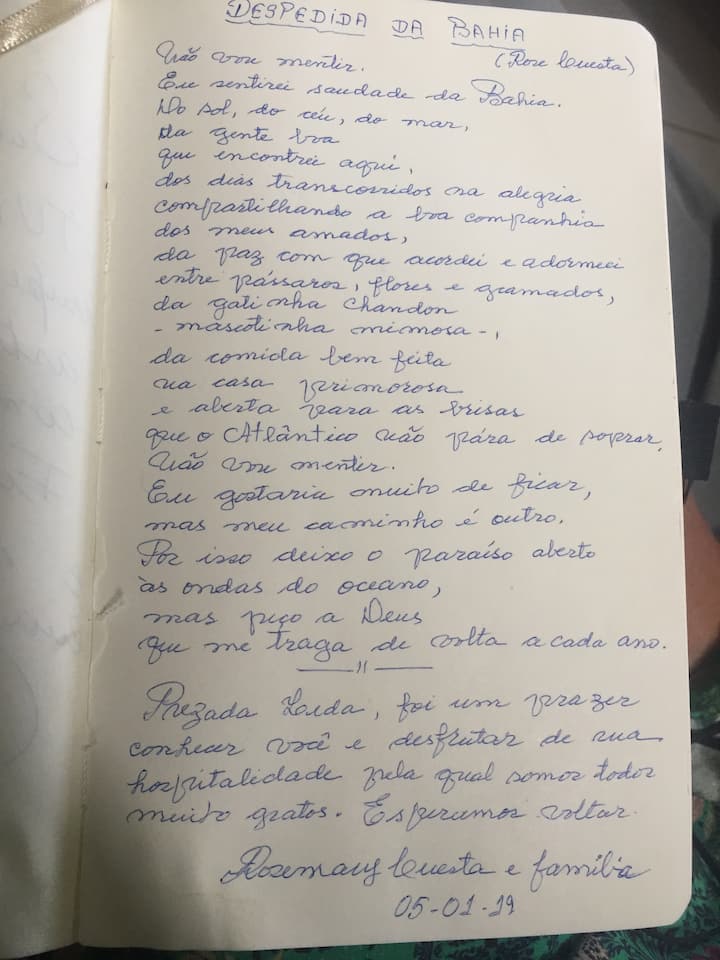 DESPEDIDA DA BAHIA
(Rose Cuesta)
Não vou mentir.
Eu sentirei saudade da Bahia.
Do sol, do céu, do mar,
da gente boa
que encontrei aqui,
dos dias transcorridos na alegria
compartilhando a boa companhia
dos meus amados,
da paz com que acordei e adormeci
entre pássaros, flores e gramados,
da gatinha Chandon
- mascotinha mimosa -,
da comida bem feita
na casa primorosa
e aberta para as brisas
que o Atlântico não pára de soprar.
Não vou mentir.
Eu gostaria muito de ficar,
mas meu caminho é outro.
Por isso deixo o paraíso aberto
às ondas do oceano,
mas peço a Deus
que me traga de volta a cada ano.
Prezada Leda, foi um prazer
conhecer você e desfrutar de sua
hospitalidade pela qual somos todos
muito gratos. Esperamos voltar.
Rosemary Cuesta e família
05-01-19